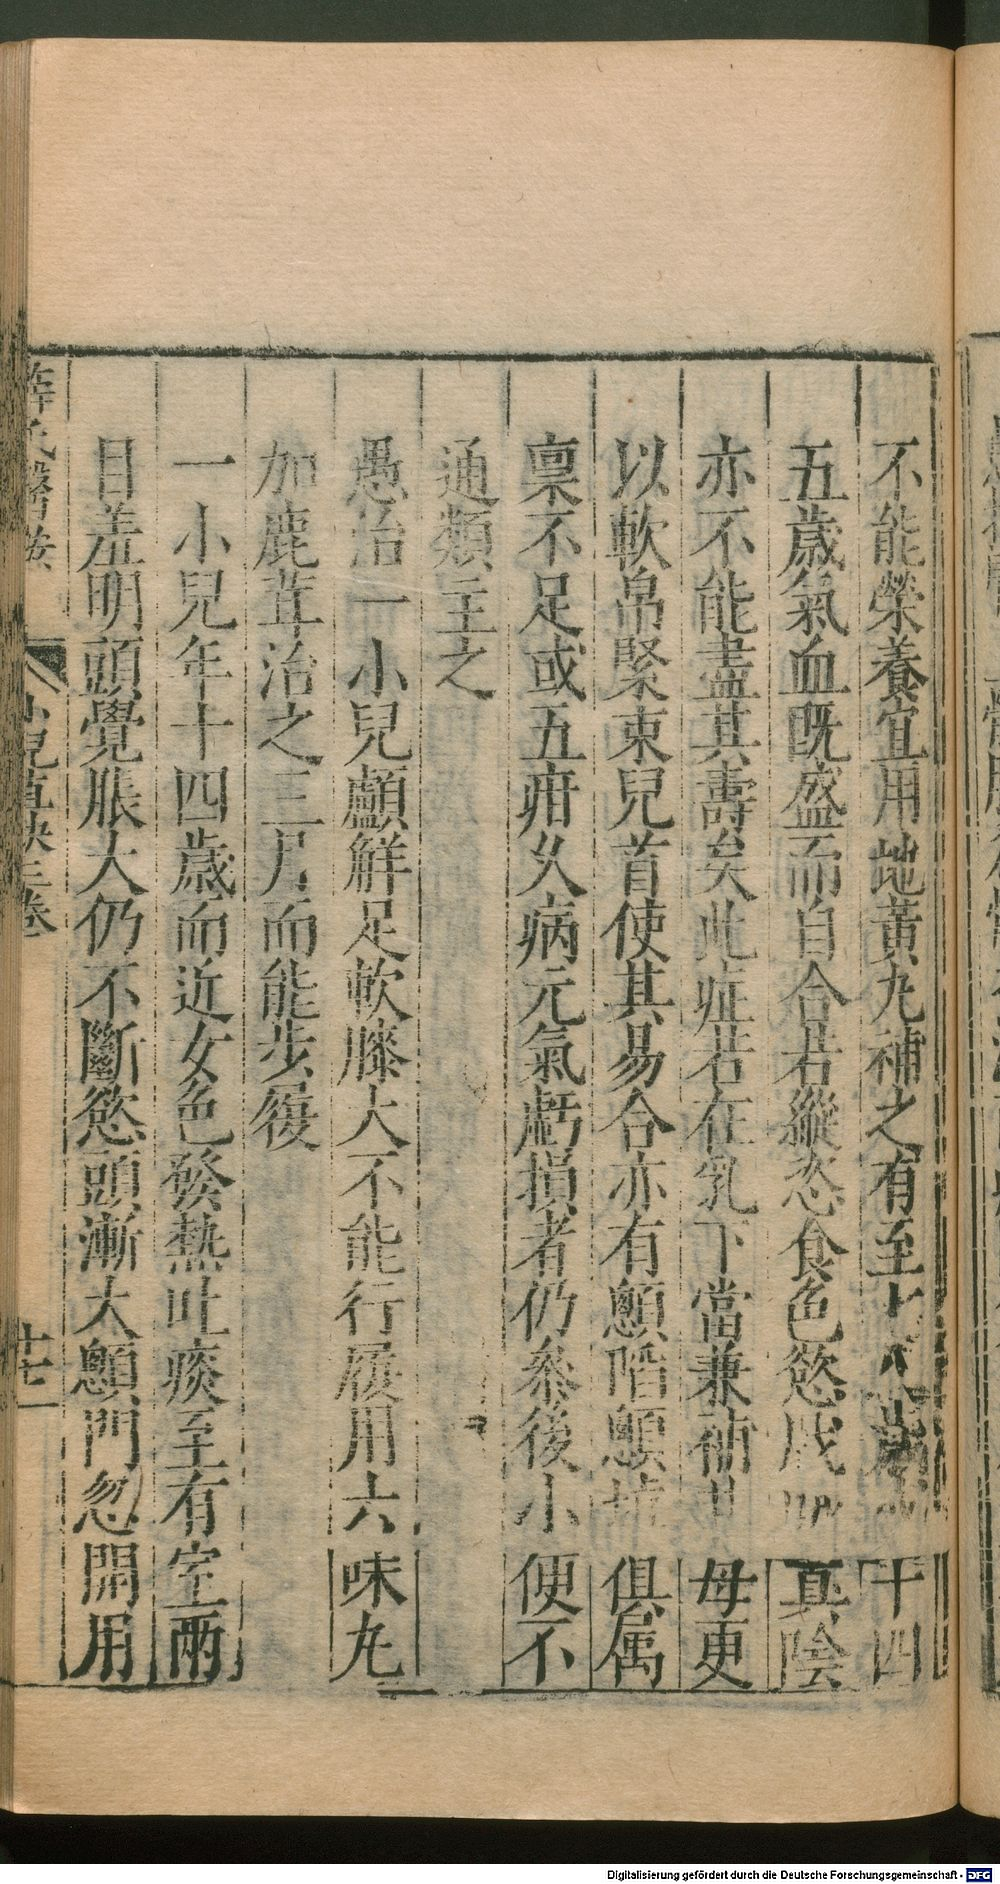 不能榮養宜用地黃丸補之有至七八歲或十四
五歲氣血既盛而自合若縱恣食色慾戕 真陰
亦不能盡其壽矣此症若在乳下當兼補其母更
以軟帛緊束兒首使其易合亦有顖陷顖填俱属
稟不足或五疳久病元氣虧損者仍參後小便不
通類主之
愚治一小兒顱解足軟膝大不能行履用六味丸
加鹿茸治之三月而能步履
一小兒年十四歲而近女色發熱吐痰至有室兩
目羞明頭覺脹大仍不斷慾頭漸大顖門忽開用
薛氏醫按
小兒直訣三卷
十七
Digitalisierung gefördert durch die Deutsche Forschungsgemeinschaft - DFG